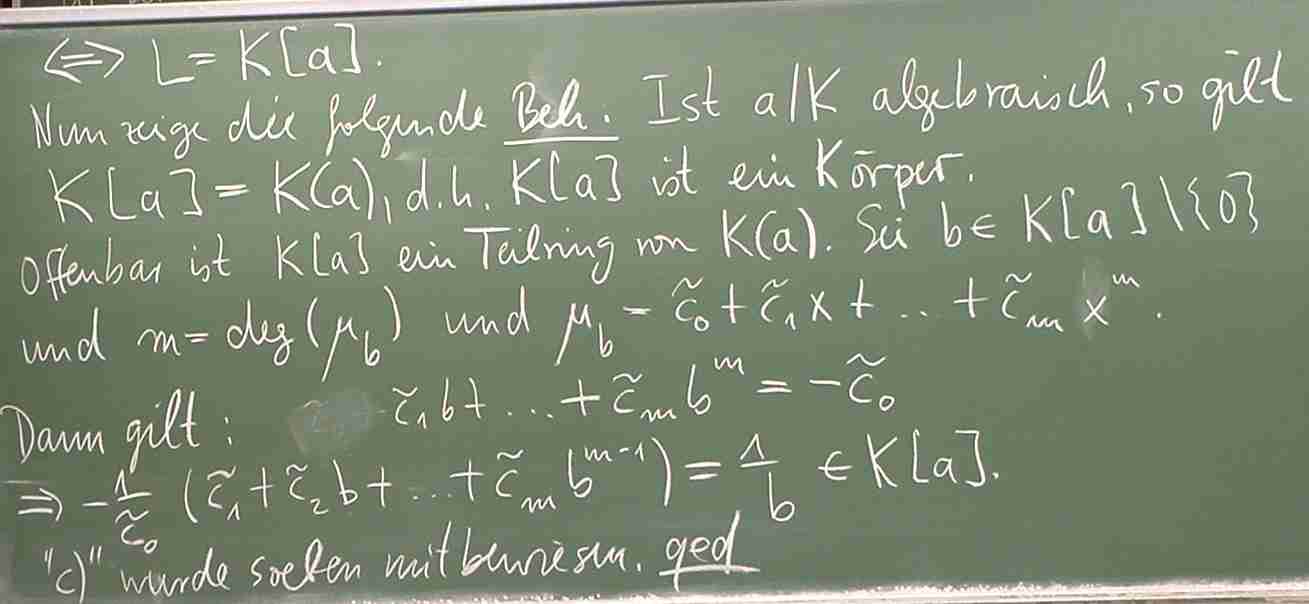 ⇔ L = K[a].
Nun zeige die folgende Beh. Ist a/K algebraisch, so gilt
K[a] = K(a), d.h. K[a] ist ein Körper.
Offenbar ist K[a] ein Teilring von K(a). Sei b ∈ K[a] \ {0}
und m = deg(μ_b) und μ_b = c̃_0 + c̃_1 x + ... + c̃_m x^m.
Dann gilt: c̃_1 b + ... + c̃_m b^m = -c̃_0
⇒ -1/c̃_0 (c̃_1 + c̃_2 b + ... + c̃_m b^{m-1}) = 1/b ∈ K[a].
"c)" wurde soeben mitbewiesen. qed